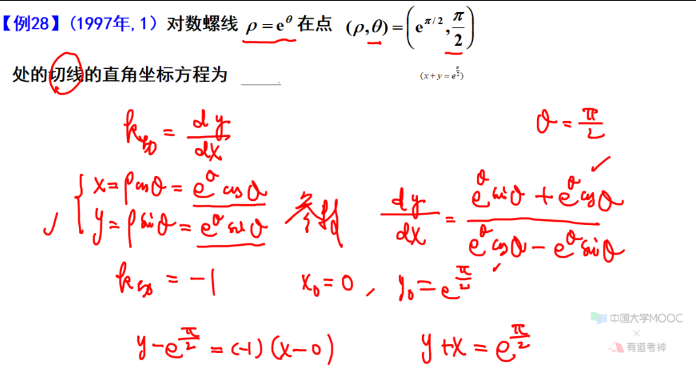 【例28】(1997年,1) 对数螺线 ρ=e^θ 在点 (ρ,θ)=(e^{π/2}, π/2)
处的切线的直角坐标方程为 ____
(x+y=e^{π/2})
k切 = dy/dx
θ = π/2
{ x=ρcosθ = e^θ cosθ
y=ρsinθ = e^θ sinθ 参数
dy/dx = (e^θ sinθ + e^θ cosθ)/(e^θ cosθ − e^θ sinθ)
k切 = −1 x₀=0, y₀=e^{π/2}
y−e^{π/2} = (−1)(x−0) y+x = e^{π/2}
中国大学MOOC
×
有道考神